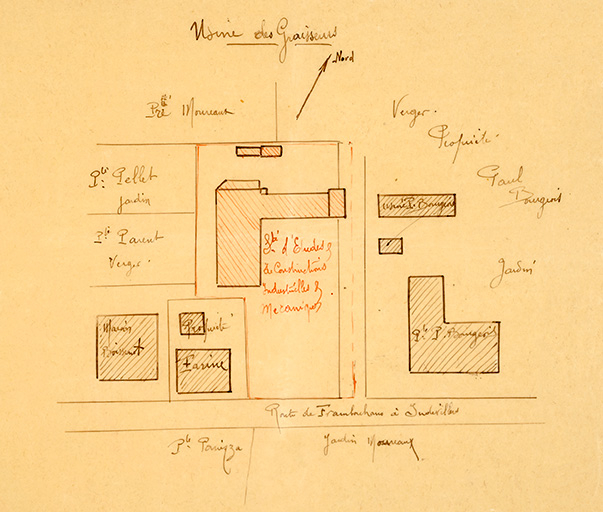 Usine des Graisseurs
Nord
Pté Moureaux
Verger.
Propriété
Paul
Bourgeois
Pté Pellet
Jardin
Pté Parent
Verger.
Usine P. Bourgeois
Sté d'Etudes &
de Constructions
Industrielles &
Mécaniques
Jardin
Maison
Boissenot
Propriété
Farine
Pté P. Bourgeois
Route de Frambouhans à Indevillers
Pté Panizza
Jardin Moureaux